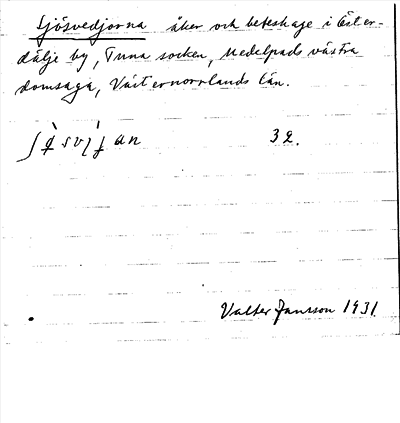 Sjösvedjorna åker och beteshage i Öster-
dälje by, Tuna socken, Medelpads västra
domsaga, Västernorrlands län.
32.
Valter Jansson 1931.